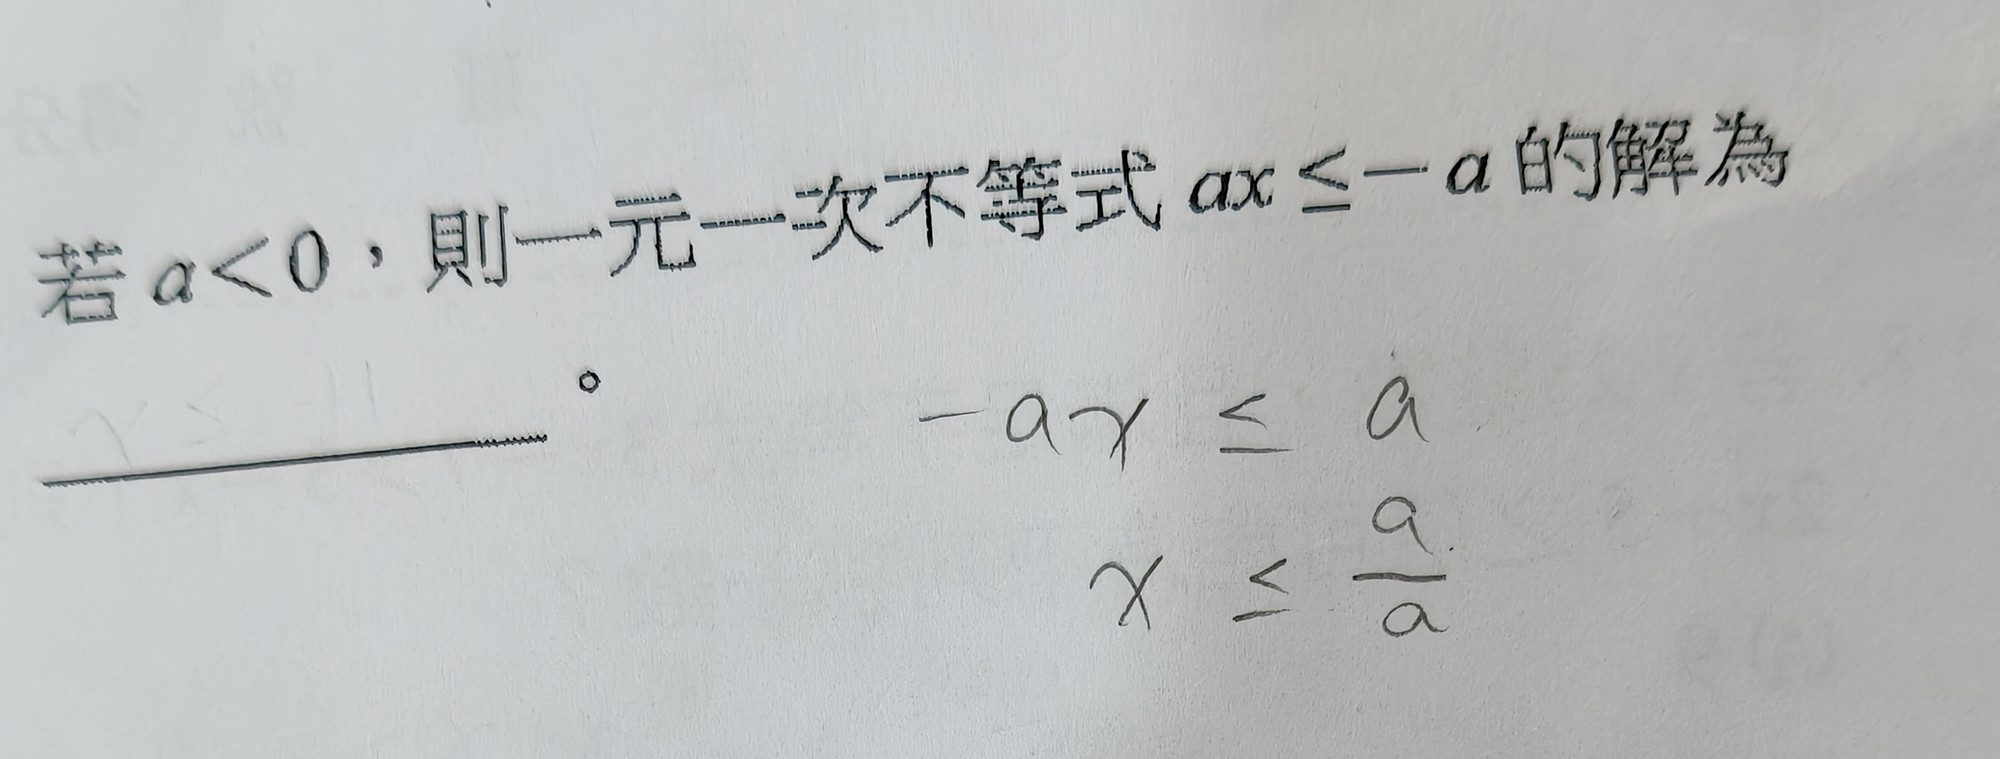 若 a<0，則一元一次不等式 ax≤−a 的解為
______。
−ax ≤ a
x ≤ a/a